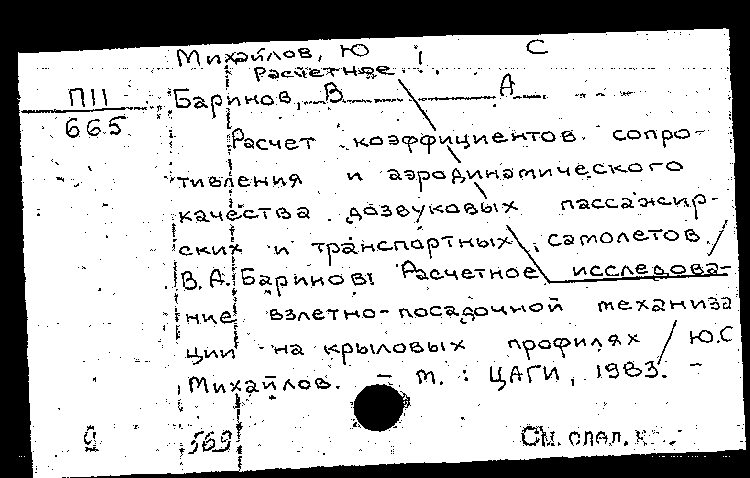 Михайлов, Ю С
Расчетное
П11 Баринов, В А
665
Расчет коэффициентов сопро-
тивления и аэродинамического
качества дозвуковых пассажир-
ских и транспортных самолетов /
В.А. Баринов. Расчетное исследова-
ние взлетно-посадочной механиза
ции на крыловых профилях / Ю.С
Михайлов. - М. : ЦАГИ, 1983. -
9 569 См. след. к